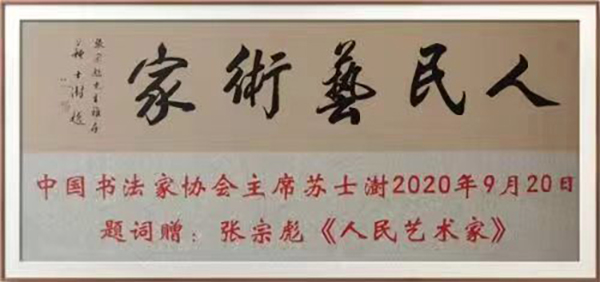 人民藝術家
張宗彪先生雅存
苏士澍題
中国书法家协会主席苏士澍2020年9月20日
题词赠：张宗彪《人民艺术家》